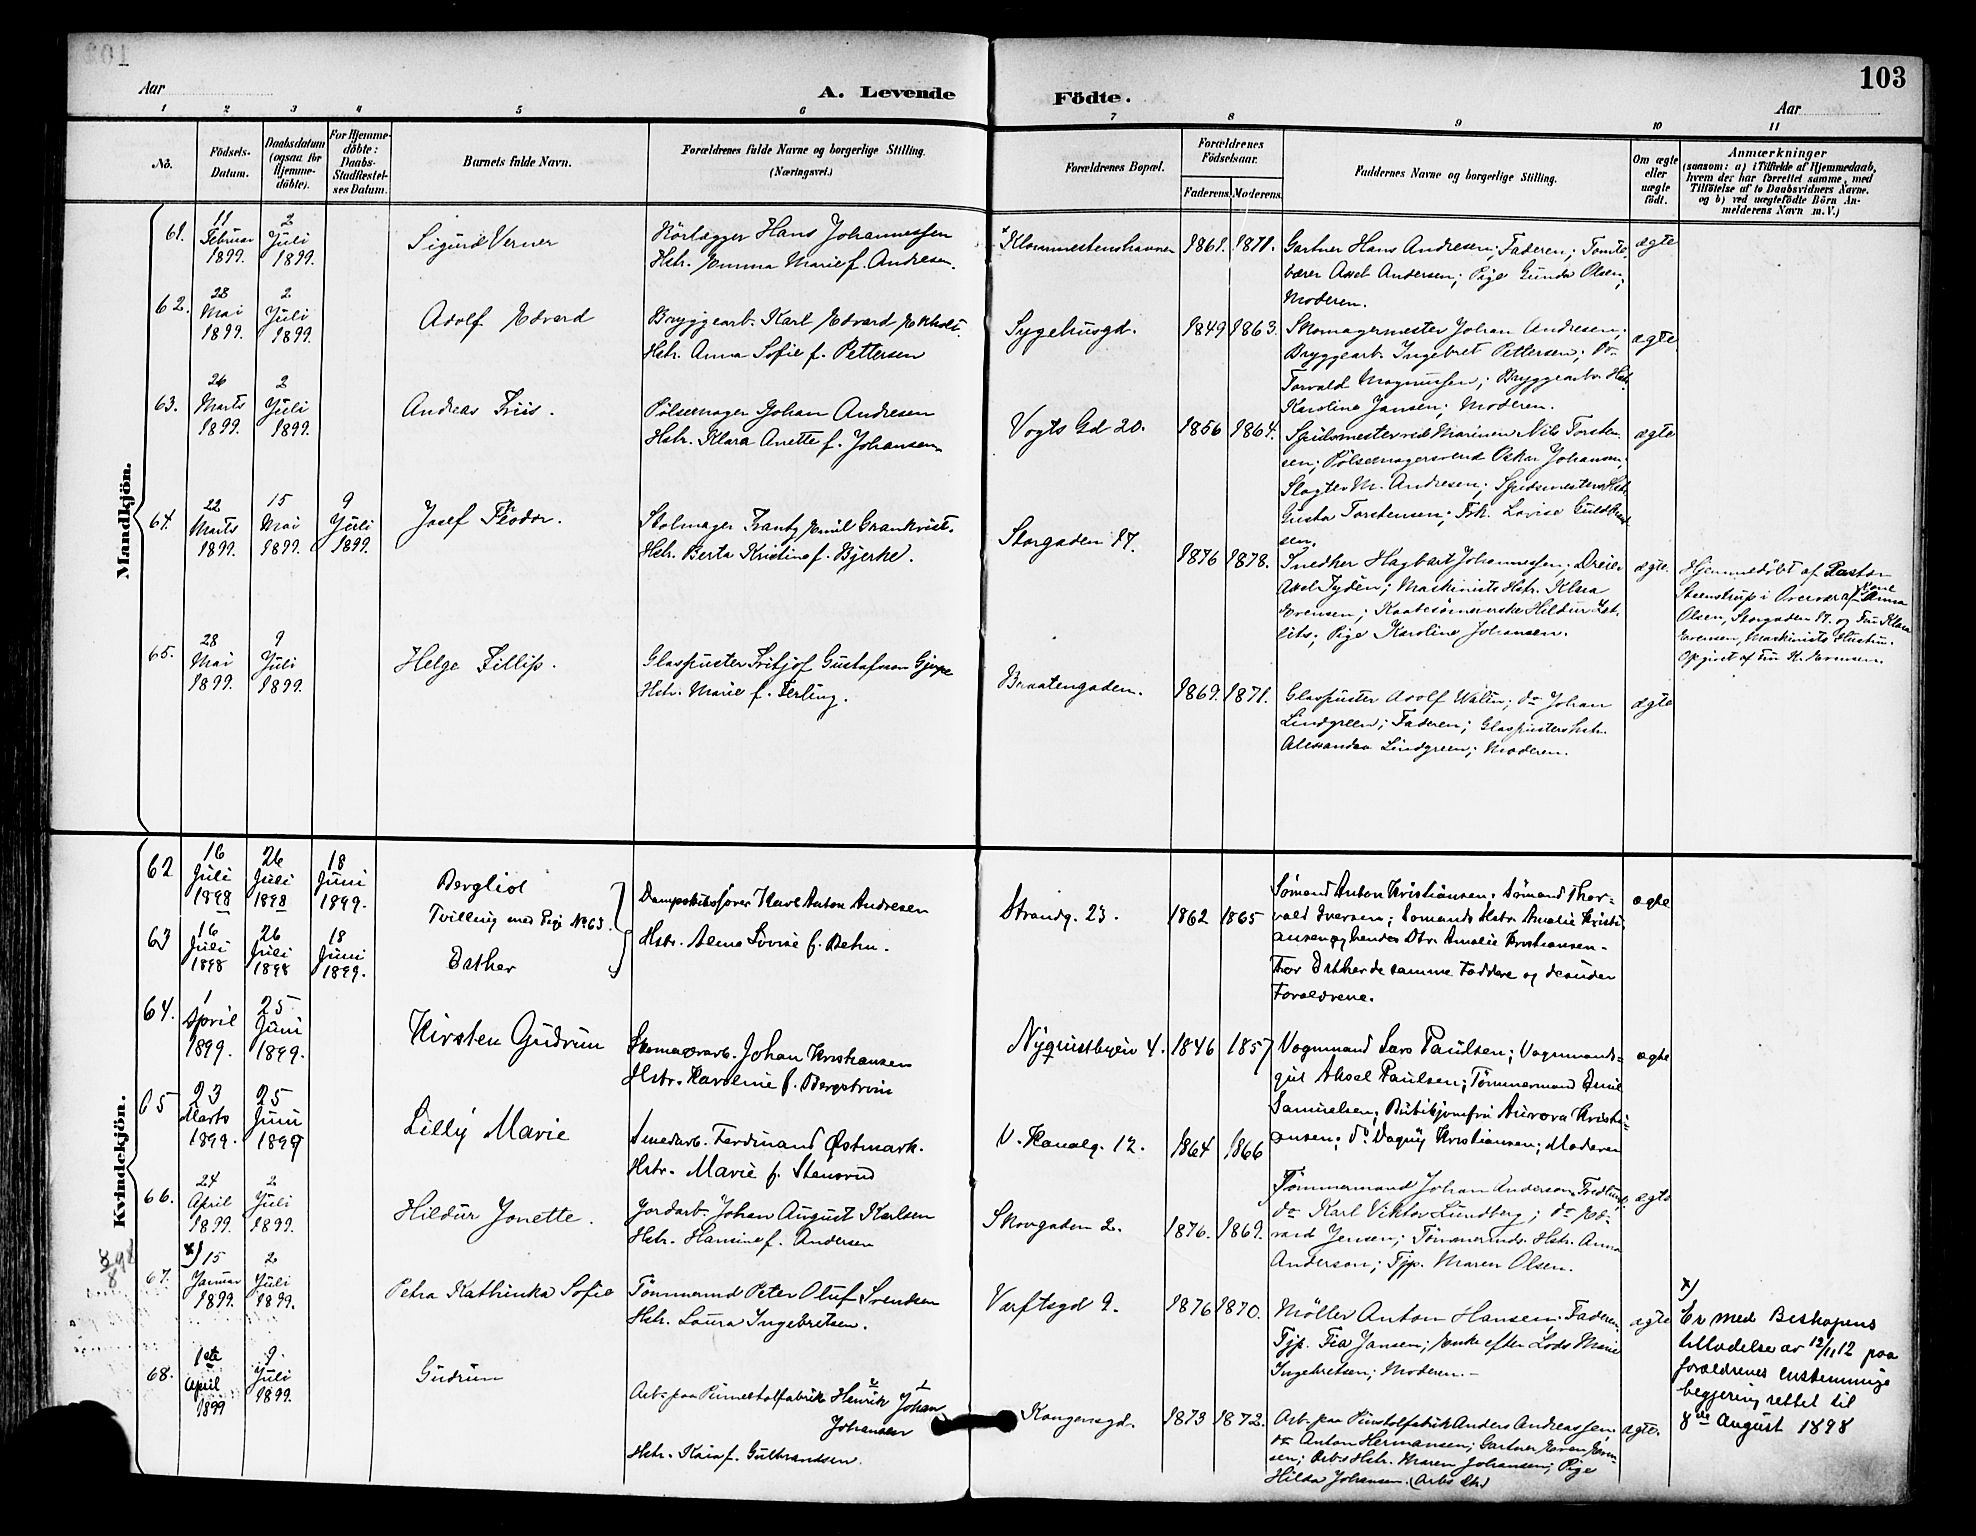 103
Aar
A. Levende Födte.
Aar
1 2 3 4 5 6 7 8 9 10 11
No.
Födsels-Datum.
Daabsdatum (ogsaa for Hjemmedöbte).
For Hjemmedöbte: Daabs-Stadfæstelses Datum.
Barnets fulde Navn.
Forældrenes fulde Navne og borgerlige Stilling. (Næringsvei.)
Forældrenes Bopæl.
Forældrenes Födselsaar.
Faderens Moderens.
Faddernes Navne og borgerlige Stilling.
Om ægte eller uægte födt.
Anmærkninger
(saasom: a) i Tilfælde af Hjemmedaab,
hvem der har forrettet samme, med
Tilföielse af to Daabsvidners Navne.
og b) ved uægtefödte Börn An-
melderens Navn m. V.)
Mandkjön.
61. 11 Februar 1899. 2 Juli 1899.
Sigurd Verner
Rörlægger Hans Johannessen
Hstr. Emma Marie f. Andresen.
1861. 1871.
Gartner Hans Andresen; Faderen; Tomte
bærer Axel Andersen; Pige Gunda Olsen;
Moderen.
ægte
62. 28 Mai 1899. 2 Juli 1899.
Adolf Edvard
Bryggearb. Karl Edvard Ekholt.
Hstr. Anna Sofie f. Pettersen
Sygehusgd.
1849 1863.
Skomagermester Johan Andresen;
Bryggearb. Ingebret Pettersen; do
Torvald Magnussen; Bryggearb. Hstr.
Karoline Jansen; Moderen.
ægte.
63. 26 Marts 1899. 2 Juli 1899.
Andreas Friis.
Pölsemager Johan Andresen
Hstr. Klara Anette f. Johansen
Vogts Gd 20.
1856 1864.
Spidsmester ved Marinen Nils Torsten
sen; Pölsemagersvend Oskar Johansen;
Slagter M. Andresen; Spidsmesters Hstr.
Gusta Torstensen; Frk. Lovise Guldbrand
sen.
ægte
64. 22 Marts 1899. 15 Mai 1899. 9 Juli 1899.
Josef Theodor.
Stolmager Frantz Emil Grankvist.
Hstr. Berta Kristine f. Bjerke.
Storgaden 17.
1876 1878.
Snedker Hagbart Johannessen; Dreier
Axel Tydén; Maskinists Hstr. Klara
Evensen; Kaabesömmerske Hildur
Pige Karoline Johansen.
ægte.
Hjemmedöbt af Pastor
Steenstrup i Overvær af Kone Anna
Olsen, Storgaden 17. og Fru Klara
Evensen, Maskinists Hustru.
Opgivet af Fru K. Evensen.
65. 28 Mai 1899. 9 Juli 1899.
Helge Fillip.
Glaspuster Fritjof Gustafsson Gjepe
Hstr. Marie f. Ferling.
Braatengaden.
1869. 1871.
Glaspuster Adolf Walin; do Johan
Lindgreen; Faderen; Glaspusters hstr.
Alexandra Lindgreen; Moderen.
ægte
Kvindekjön.
62 16 Juli 1898 26 Juli 1898 18 Juni 1899.
Bergliot
Tvilling med Pige No 63.
Dampskibsförer Karl Anton Andresen
Hstr. Alma Lovise f. Behn.
Strandg. 23.
1862 1865
Sömand Anton Kristiansen; Sömand Thor-
vald Iversen; Sömands Hstr. Amalie Kristi-
ansen og hendes Dtr. Amalie Kristiansen.
For Esther de samme Faddere og desuden
Forældrene.
ægte
63 16 Juli 1898 26 Juli 1898 18 Juni 1899.
Esther
64. 1 April 1899. 25 Juni 1899.
Kirsten Gudrun
Skomagerarb. Johan Kristiansen
Hstr. Karoline f. Bergström
Nyquistbyen 4.
1846 1857
Vognmand Lars Paulsen; Vognmands-
gut Aksel Paulsen; Tömmermand Emil
Samuelsen; Butikjomfru Aurora Kristi-
ansen; do Dagny Kristiansen; Moderen
ægte
65 23 Marts 1899. 25 Juni 1899
Lilly Marie
Smedarb. Ferdinand Østmark.
Hstr. Marie f. Stensrud
V. Kanalg. 12.
1864 1866
Tömmermand Johan Anderson Fredlund;
do Karl Viktor Lundberg; do Ed-
vard Jensen; Tömmermds. Hstr. Anna
Anderson; Tjp. Maren Olsen.
ægte
66. 24 April 1899. 2 Juli 1899.
Hildur Jonette.
Jordarb. Johan August Karlsen
Hstr. Hansine f. Andersen
Skovgaden 2.
1876. 1869.
8/8 98
67. x) 15 Januar 1899. 2 Juli 1899.
Petra Kathinka Sofie
Tömmermd Peter Oluf Svendsen
Hstr. Laura Ingebretsen.
Værftsgd 9.
1876 1870.
Möller Anton Hansen; Faderen;
Tjp. Fia Jansen; Enke efter Lods Marie
Ingebretsen; Moderen.
ægte
x)
Er med Biskopens
tilladelse av 12/11 12 paa
forældrenes enstemmige
begjæring rettet til
8de August 1898
68. 1ste April 1899 9. Juli 1899.
Gudrun
Arb. paa Pinnestolfabrik Henrik Johan
Johansen
Hstr. Kaia f. Gulbrandsen.
Kongensgd.
1873 1872.
Arb. paa Pinstolfabrik Anders Andreassen;
do Anton Hermansen; Gartner Even Even-
sen; Arbs. Hstr. Maren Johansen; Pige
Hilda Johansen. (Arbs Dtr)
ægte.